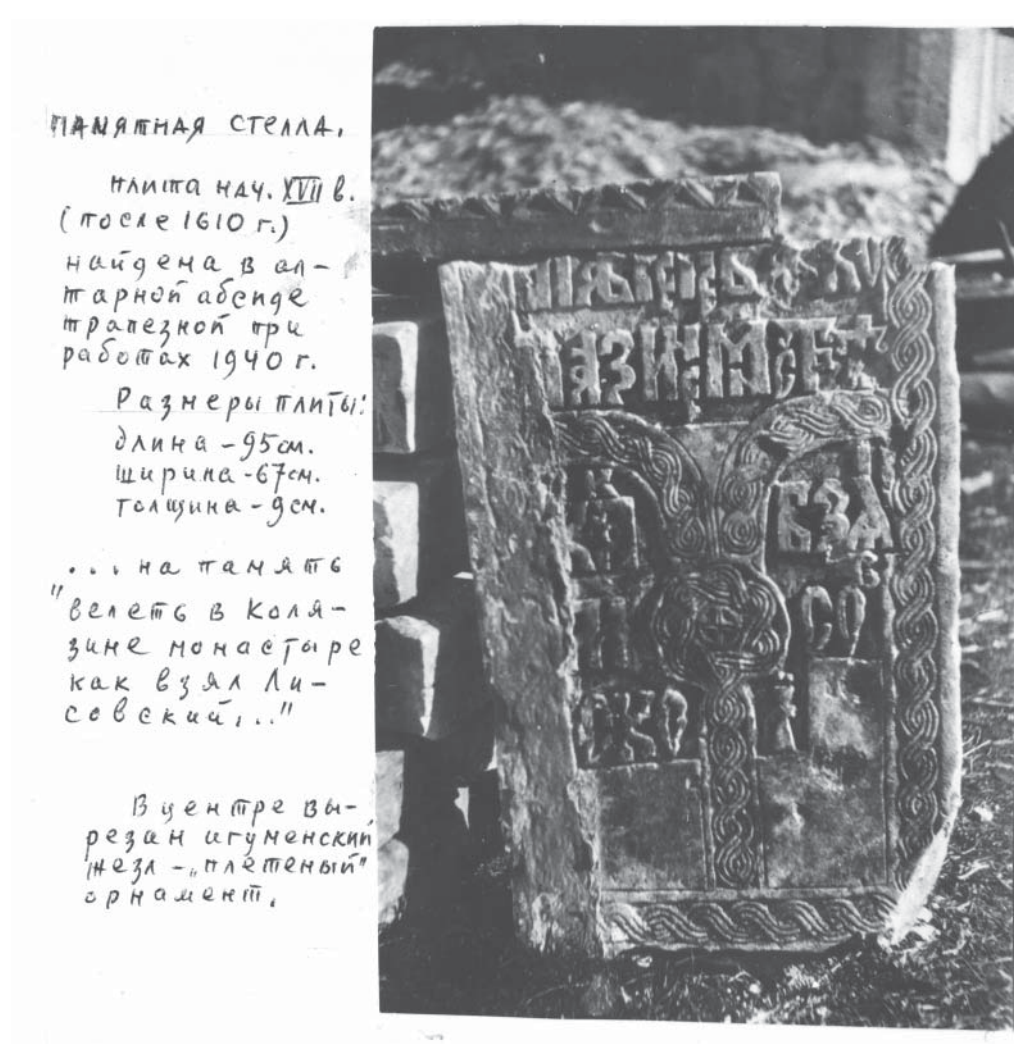 ПАМЯТНАЯ СТЕЛЛА.
плита нач. XVII в.
(после 1610 г.)
найдена в ал-
тарной абсиде
трапезной при
работах 1940 г.
Размеры плиты:
длина - 95 см.
ширина - 67 см.
толщина - 9 см.
...на память
"велеть в Коля-
зине монастыре
как взял Ли-
совский..."
В центре вы-
резан игуменский
жезл - „плетеный"
орнамент.
КАК
ВЗЯ
СО
В
СКО
И